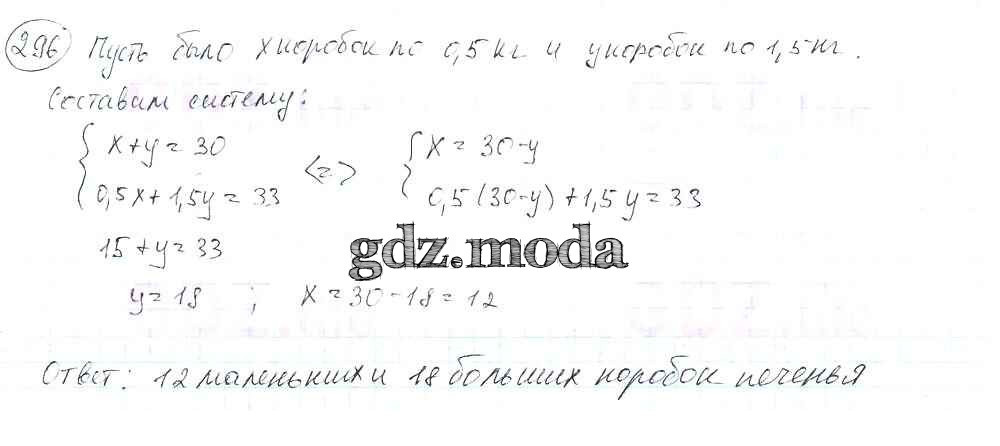 296 Пусть было x коробок по 0,5 кг и y коробок по 1,5 кг.
Составим систему:
{ x + y = 30 <=> { x = 30 - y
0,5x + 1,5y = 33 0,5(30 - y) + 1,5y = 33
15 + y = 33
gdz.moda
y = 18 ; x = 30 - 18 = 12
Ответ: 12 маленьких и 18 больших коробок печенья